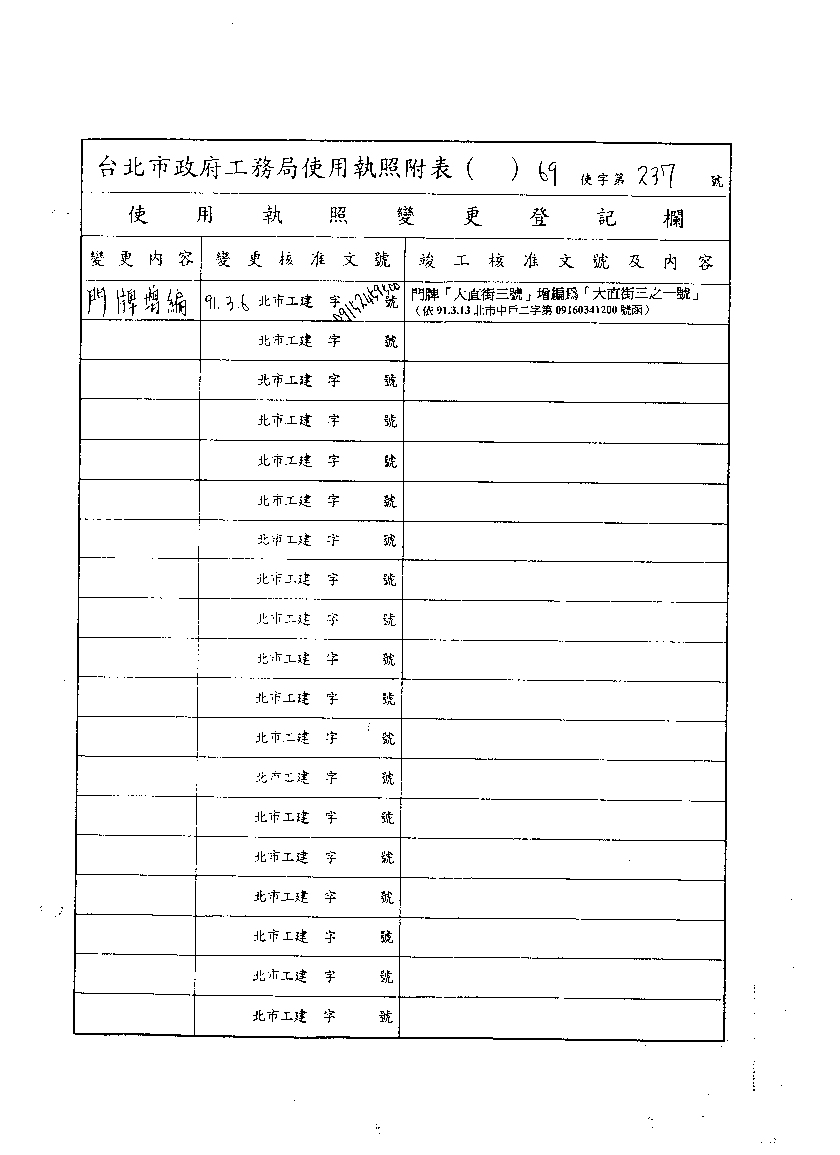 台北市政府工務局使用執照附表（　）69 使字第 237 號
使用執照變更登記欄
變更內容 變更核准文號 竣工核准文號及內容
門牌增編 91.3.6 北市工建 字 號 門牌「大直街三號」增編為「大直街三之一號」
（依 91.3.13 北市中戶二字第 09160341200 號函）
北市工建 字 號
北市工建 字 號
北市工建 字 號
北市工建 字 號
北市工建 字 號
北市工建 字 號
北市工建 字 號
北市工建 字 號
北市工建 字 號
北市工建 字 號
北市工建 字 號
北市工建 字 號
北市工建 字 號
北市工建 字 號
北市工建 字 號
北市工建 字 號
北市工建 字 號
北市工建 字 號